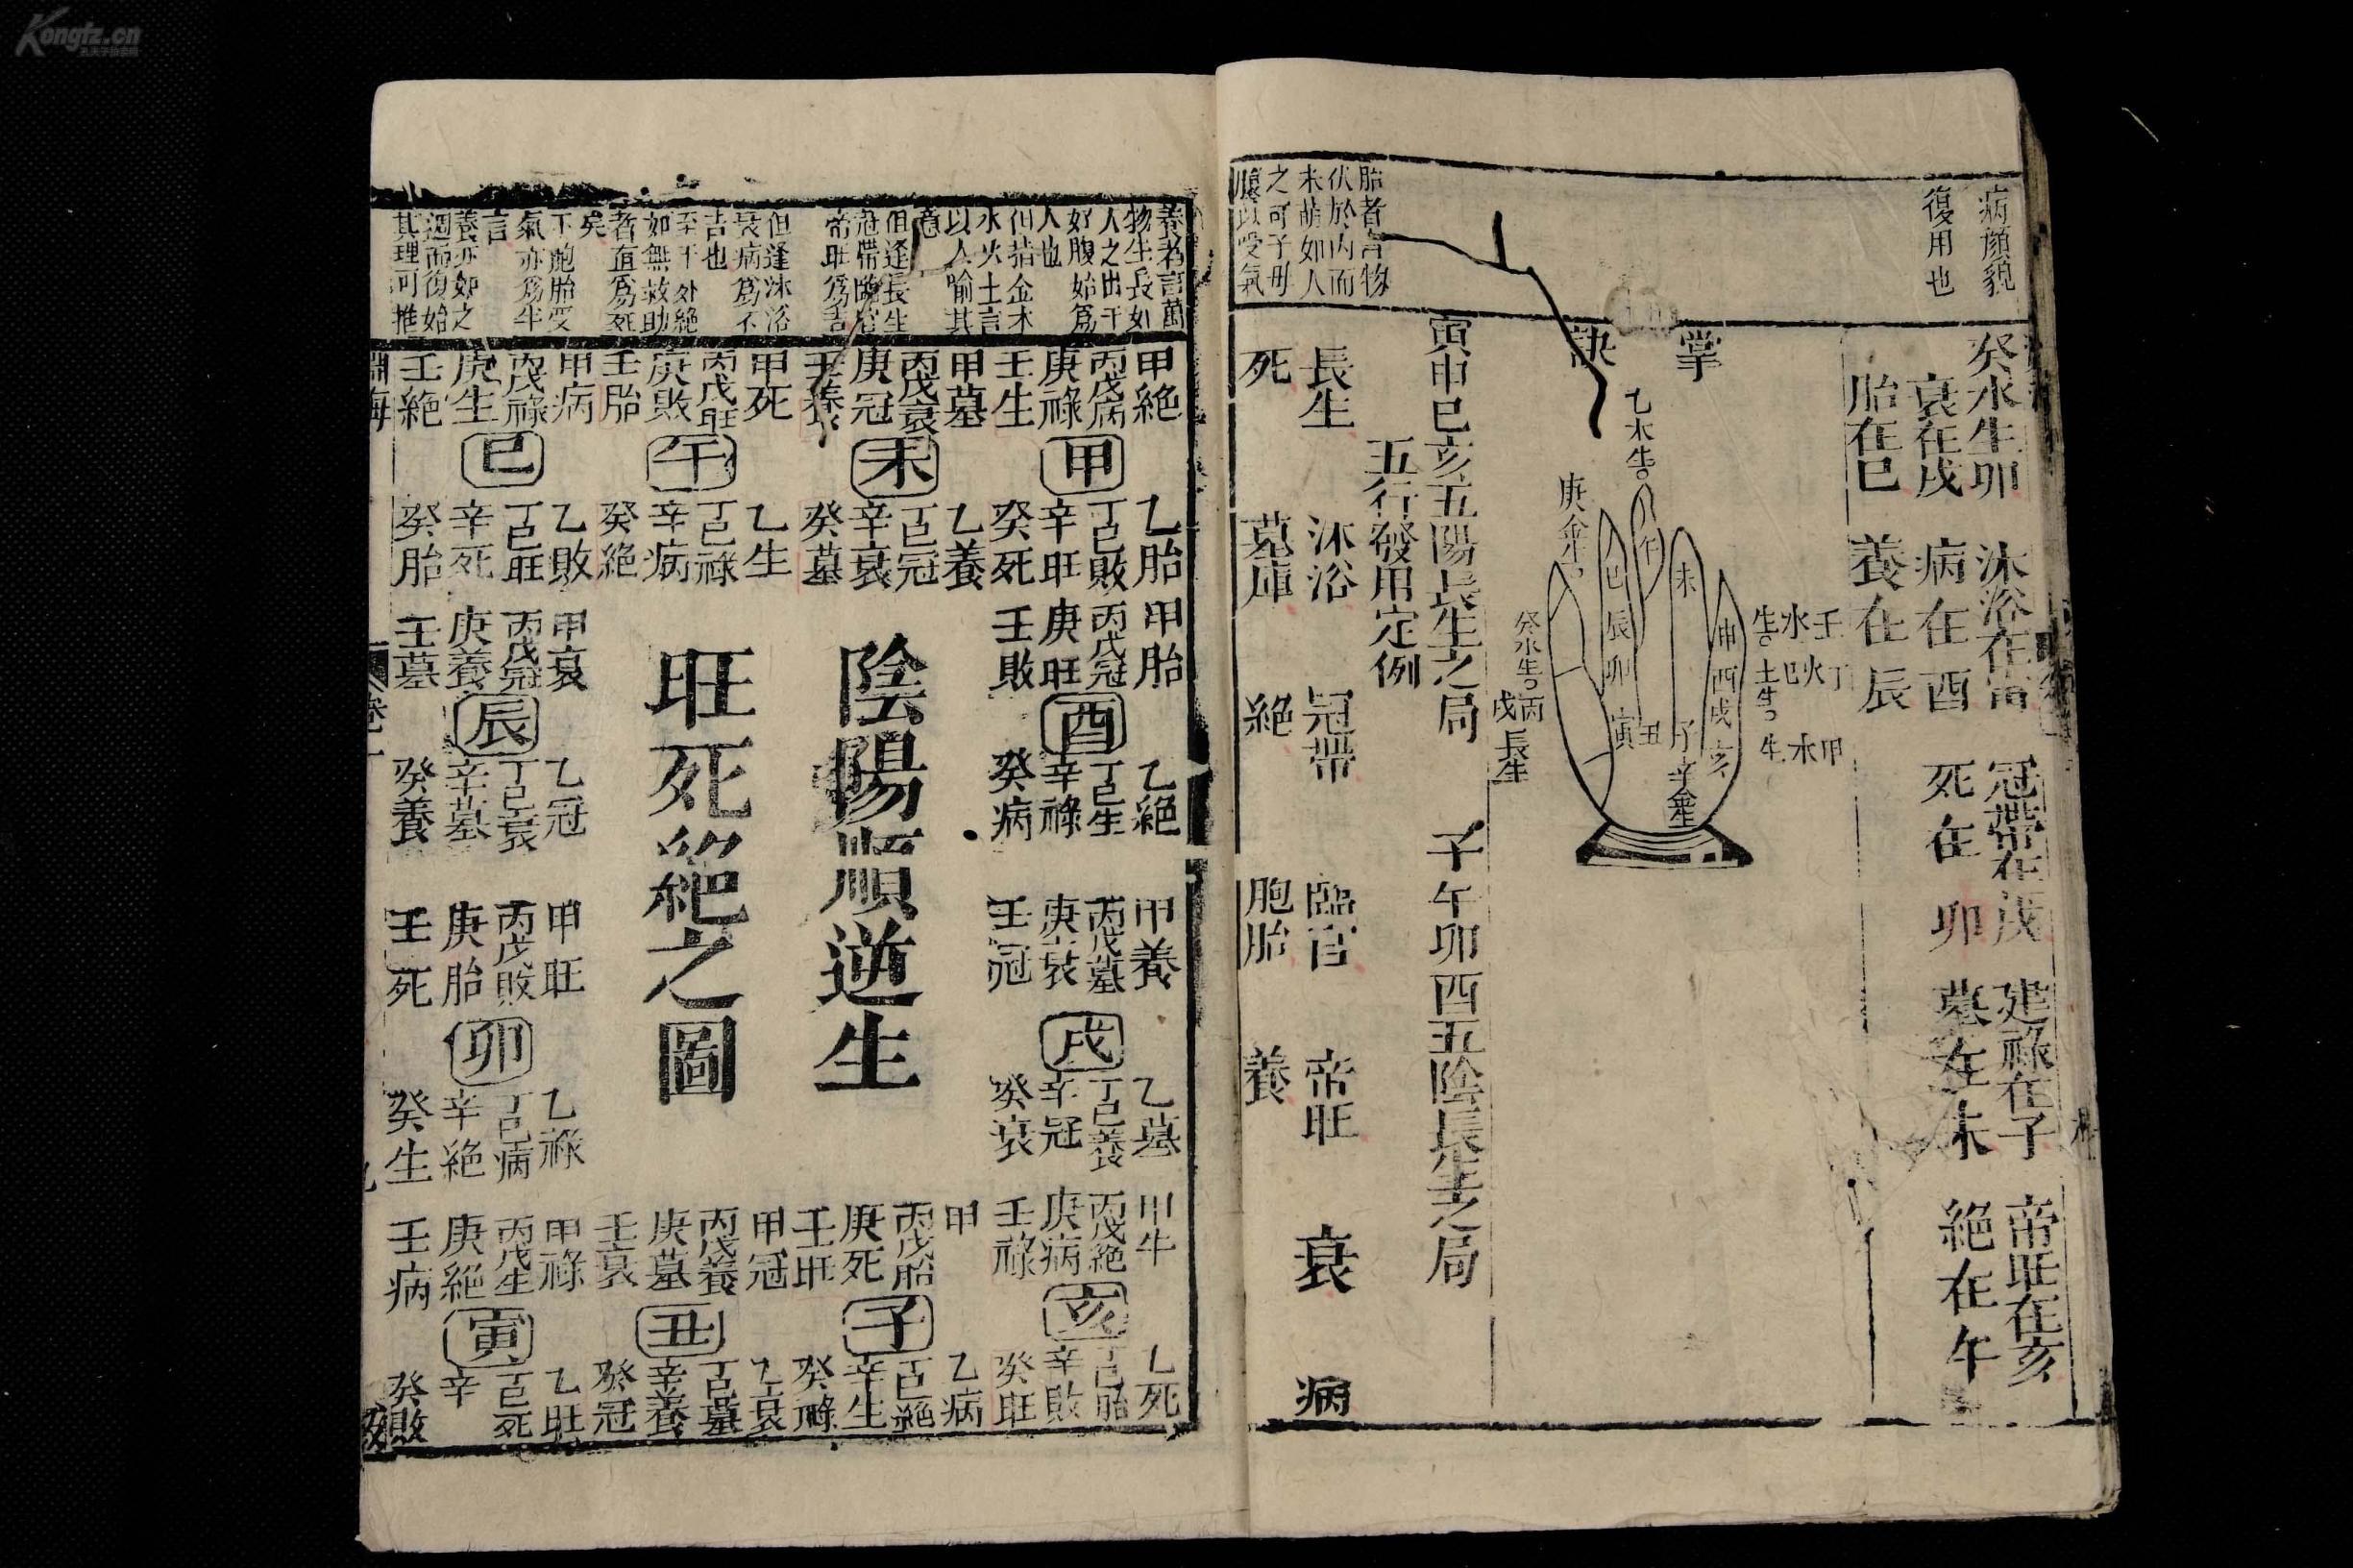 Kongfz.cn
病顏貌
復用也
胎者言物
伏於內而
未萌如人
之可子母
腹以受氣
癸水生卯 沐浴在寅 冠帶在戌 建祿在子 帝旺在亥
衰在戌 病在酉 死在卯 墓在未 絕在午
胎在巳 養在辰
掌
訣
乙木生
庚金生
癸水生
丙戊長生
壬水生
丁火巳土生
甲木生
午
巳
未
辰
申
卯
酉
寅
丑
子
戌
亥
辛金生
寅申巳亥五陽長生之局 子午卯酉五陰長生之局
五行發用定例
長生 沐浴 冠帶 臨官 帝旺 衰 病
死 墓庫 絕 胞胎 養
養者言萬
物生長如
人之出干
好腹始爲
人也
但指金木
水火土言
以人喻其
意
但逢長生
冠帶臨官
帝旺爲吉
但逢沐浴
衰病爲不
吉也
至于处絕
如無救助
者直爲死
矣
下胞胎受
氣亦爲半
言
養亦如之
週而復始
其理可推
甲絕
丙戊病
庚祿
壬生
甲
乙胎
丁己敗
辛旺
癸死
甲墓
丙戊衰
庚冠
壬養
未
乙養
丁己冠
辛衰
癸墓
甲死
丙戊旺
庚敗
壬胎
午
乙生
丁己祿
辛病
癸絕
甲病
丙戊祿
庚生
壬絕
巳
乙敗
丁己旺
辛死
癸胎
甲胎
丙戊冠
庚旺
壬敗
酉
乙絕
丁己生
辛祿
癸病
陰陽順逆生
旺死絕之圖
甲衰
丙戊冠
庚養
壬墓
辰
乙冠
丁己衰
辛墓
癸養
甲養
丙戊墓
庚衰
壬冠
戌
乙墓
丁己養
辛冠
癸衰
甲旺
丙戊敗
庚胎
壬死
卯
乙祿
丁己病
辛絕
癸生
甲生
丙戊絕
庚病
壬祿
亥
乙死
丁己胎
辛敗
癸旺
甲
丙戊胎
庚死
壬旺
子
乙病
丁己絕
辛生
癸祿
甲冠
丙戊養
庚墓
壬衰
丑
乙衰
丁己墓
辛養
癸冠
甲祿
丙戊生
庚絕
壬病
寅
乙旺
丁己死
辛
癸敗
淵海
卷一